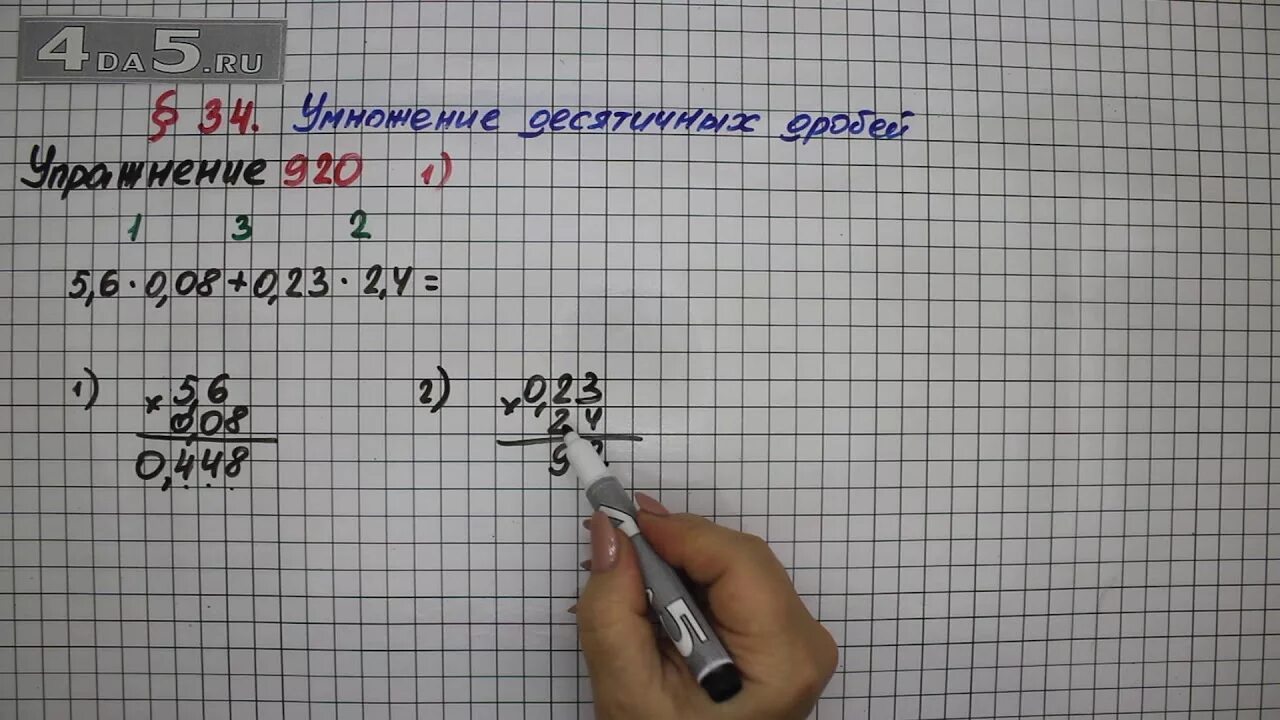 4DA5.RU
§ 34. Умножение десятичных дробей
Упражнение 920 1)
1 3 2
5,6 · 0,08 + 0,23 · 2,4 =
1) × 5,6
0,08
0,448
2) × 0,23
2 4
9
5